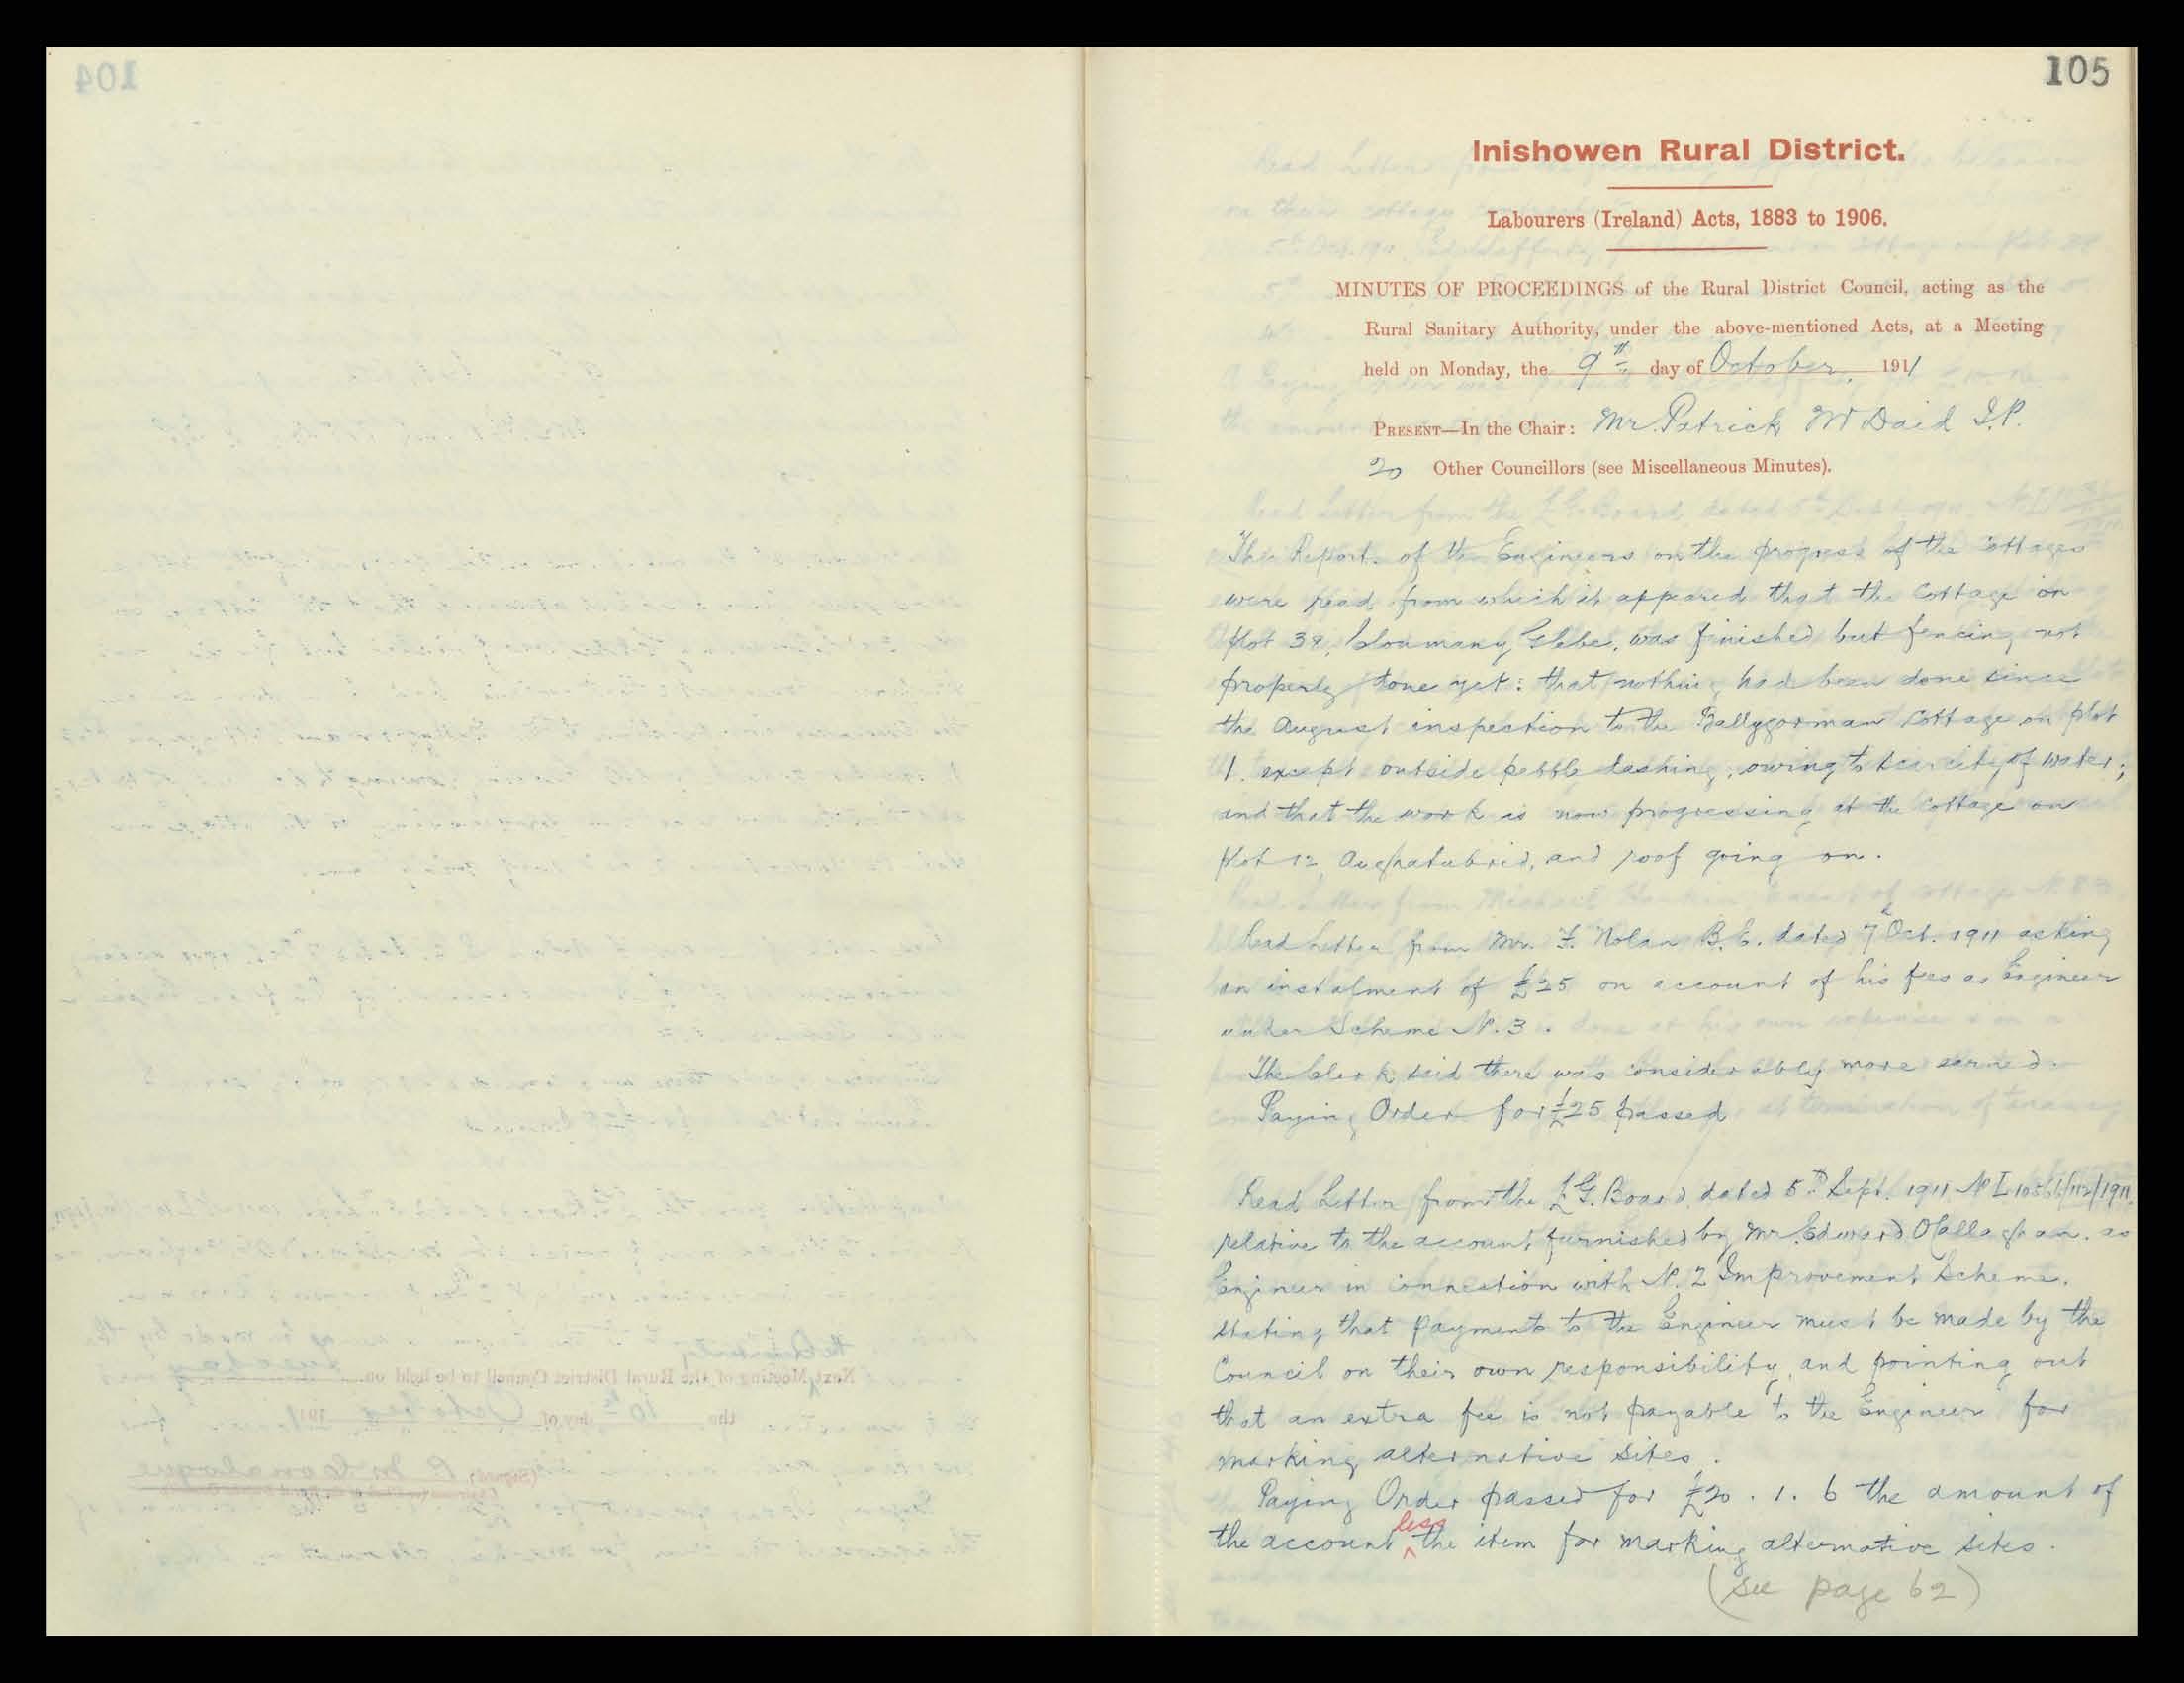 105
Inishowen Rural District.
Labourers (Ireland) Acts, 1883 to 1906.
MINUTES OF PROCEEDINGS of the Rural District Council, acting as the
Rural Sanitary Authority, under the above-mentioned Acts, at a Meeting
held on Monday, the 9th day of October, 1911
PRESENT—In the Chair: Mr. Patrick McDaid J.P.
20 Other Councillors (see Miscellaneous Minutes).
The Report. of the Engineers on the progress of the Cottages
were read from which it appeared that the Cottage on
Plot 38, Clonmany Glebe, was finished but fencing not
properly done yet: that nothing had been done since
the August inspection to the Ballygorman Cottage on plot
1. except outside pebble dashing, owing to scarcity of water;
and that the work is now progressing at the Cottage on
Plot 12 Aughatubrid, and roof going on.
Read Letter from Mr. F. Nolan B.E. dated 7th Oct. 1911 asking
an instalment of £25 on account of his fees as Engineer
under Scheme No. 3.
The Clerk said there was considerably more earned.
Paying Order for £25 passed
Read Letter from the L.G. Board, dated 5th Sept. 1911 No I
relative to the account furnished by Mr. Edward O'Callaghan. as
Engineer in connection with No. 2 Improvement Scheme.
stating that payments to the Engineer must be made by the
Council on their own responsibility, and pointing out
that an extra fee is not payable to the Engineer for
marking alternative sites.
Paying Order passed for £20. 1. 6 the amount of
the account less the item for marking alternative sites.
(see page 62)